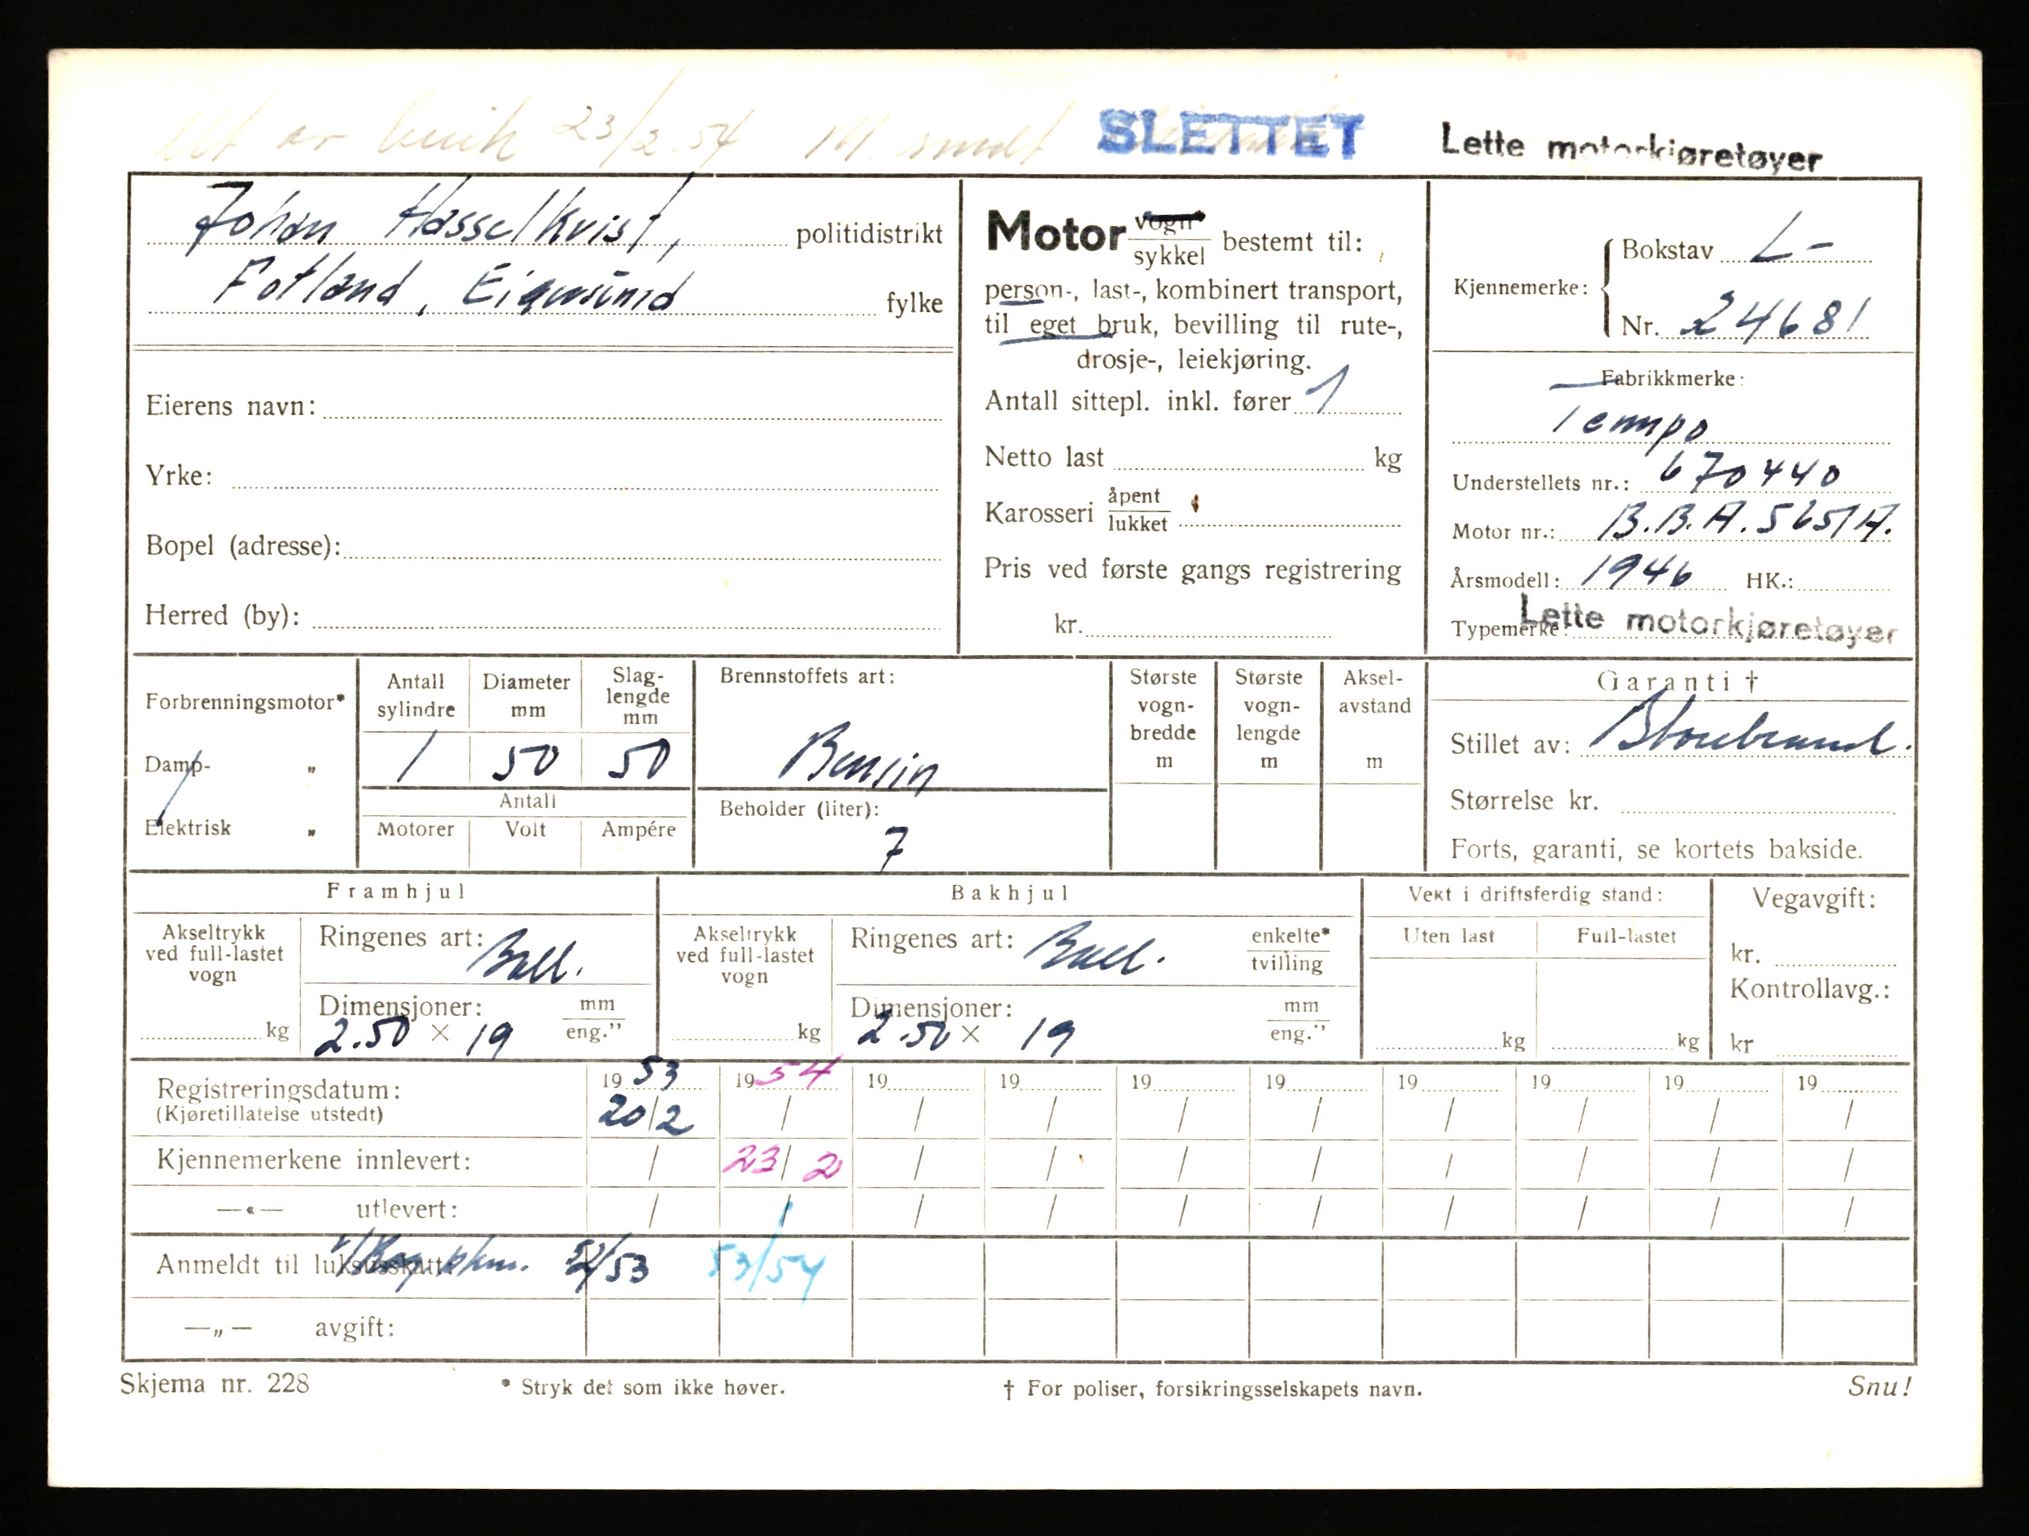 Ut av bruk 23/2.54 M. sendt SLETTET Lette motorkjøretøyer
Johan Hasselkvist, politidistrikt
Fotland, Eigersund fylke
Eierens navn:
Yrke:
Bopel (adresse):
Herred (by):
Motor vogn* / sykkel bestemt til:
person-, last-, kombinert transport,
til eget bruk, bevilling til rute-,
drosje-, leiekjøring.
Antall sittepl. inkl. fører 1
Netto last kg
Karosseri åpent / lukket
Pris ved første gangs registrering
kr.
Kjennemerke: Bokstav L-
Nr. 24681
Fabrikkmerke:
Tempo
Understellets nr.: 670440
Motor nr.: B.B.A. 5651A.
Årsmodell: 1946 HK.:
Typemerke: Lette motorkjøretøyer
Forbrenningsmotor*
Damp- „
Elektrisk „
Antall sylindre
Diameter mm
Slag-lengde mm
1 50 50
Antall
Motorer Volt Ampére
Brennstoffets art:
Bensin
Beholder (liter):
7
Største vogn-bredde m
Største vogn-lengde m
Aksel-avstand m
Garanti †
Stillet av: Storebrand.
Størrelse kr.
Forts, garanti, se kortets bakside.
Framhjul
Akseltrykk ved full-lastet vogn
kg
Ringenes art: Ball.
Dimensjoner: mm / eng.”
2.50 × 19
Bakhjul
Akseltrykk ved full-lastet vogn
kg
Ringenes art: Ball. enkelte* / tvilling
Dimensjoner: mm / eng.”
2.50 × 19
Vekt i driftsferdig stand:
Uten last Full-lastet
kg kg
Vegavgift:
kr.
Kontrollavg.:
kr
Registreringsdatum: 19 53 19 54 19 19 19 19 19 19 19 19
(Kjøretillatelse utstedt) 20/2 / / / / / / / / /
Kjennemerkene innlevert: / 23/2 / / / / / / / /
—«— utlevert: / / / / / / / / / /
Anmeldt til luksusskatt: 52/53 53/54
—„— avgift:
Skjema nr. 228 * Stryk det som ikke høver. † For poliser, forsikringsselskapets navn. Snu!